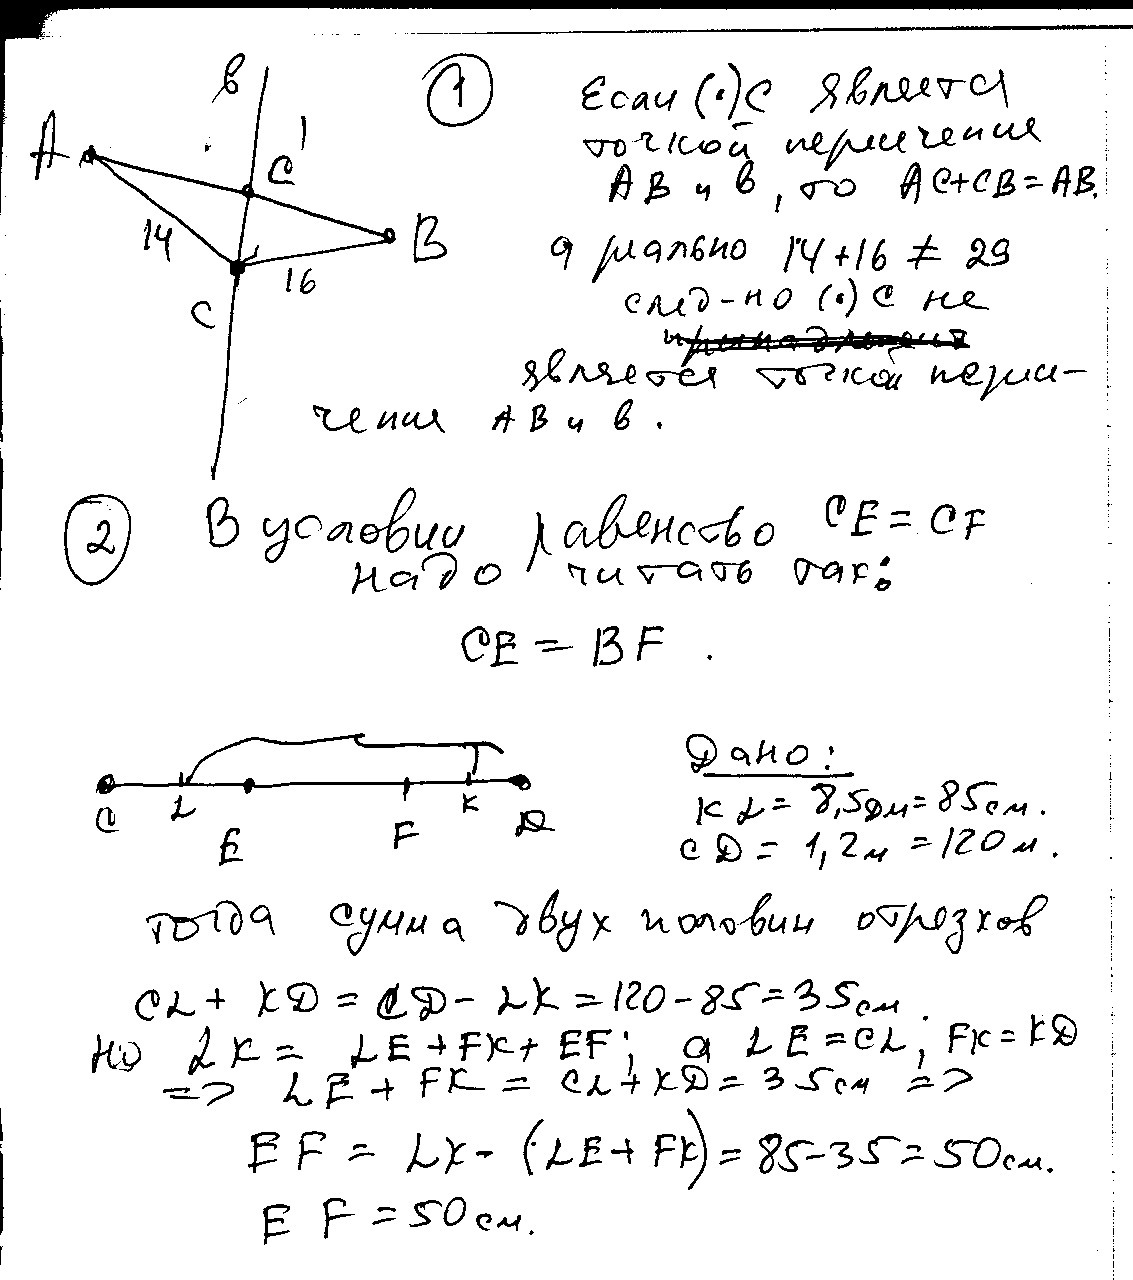 в
①
Если (·)С является
точкой пересечения
АВ и в, то АС+СВ=АВ.
А
С'
В
14
16
С
а реально 14+16 ≠ 29
след-но (·)С не
является точкой пересе-
чения АВ и в.
② В условии равенство СЕ = СF
надо читать так:
СЕ = ВF.
C L E F K D
Дано:
KL = 8,5дм = 85см.
CD = 1,2м = 120м.
тогда сумма двух половин отрезков
CL + KD = CD - LK = 120 - 85 = 35см.
но LK = LE + FK + EF; а LE = CL; FK = KD
=> LE + FK = CL + KD = 35см =>
EF = LK - (LE + FK) = 85-35 = 50см.
EF = 50см.